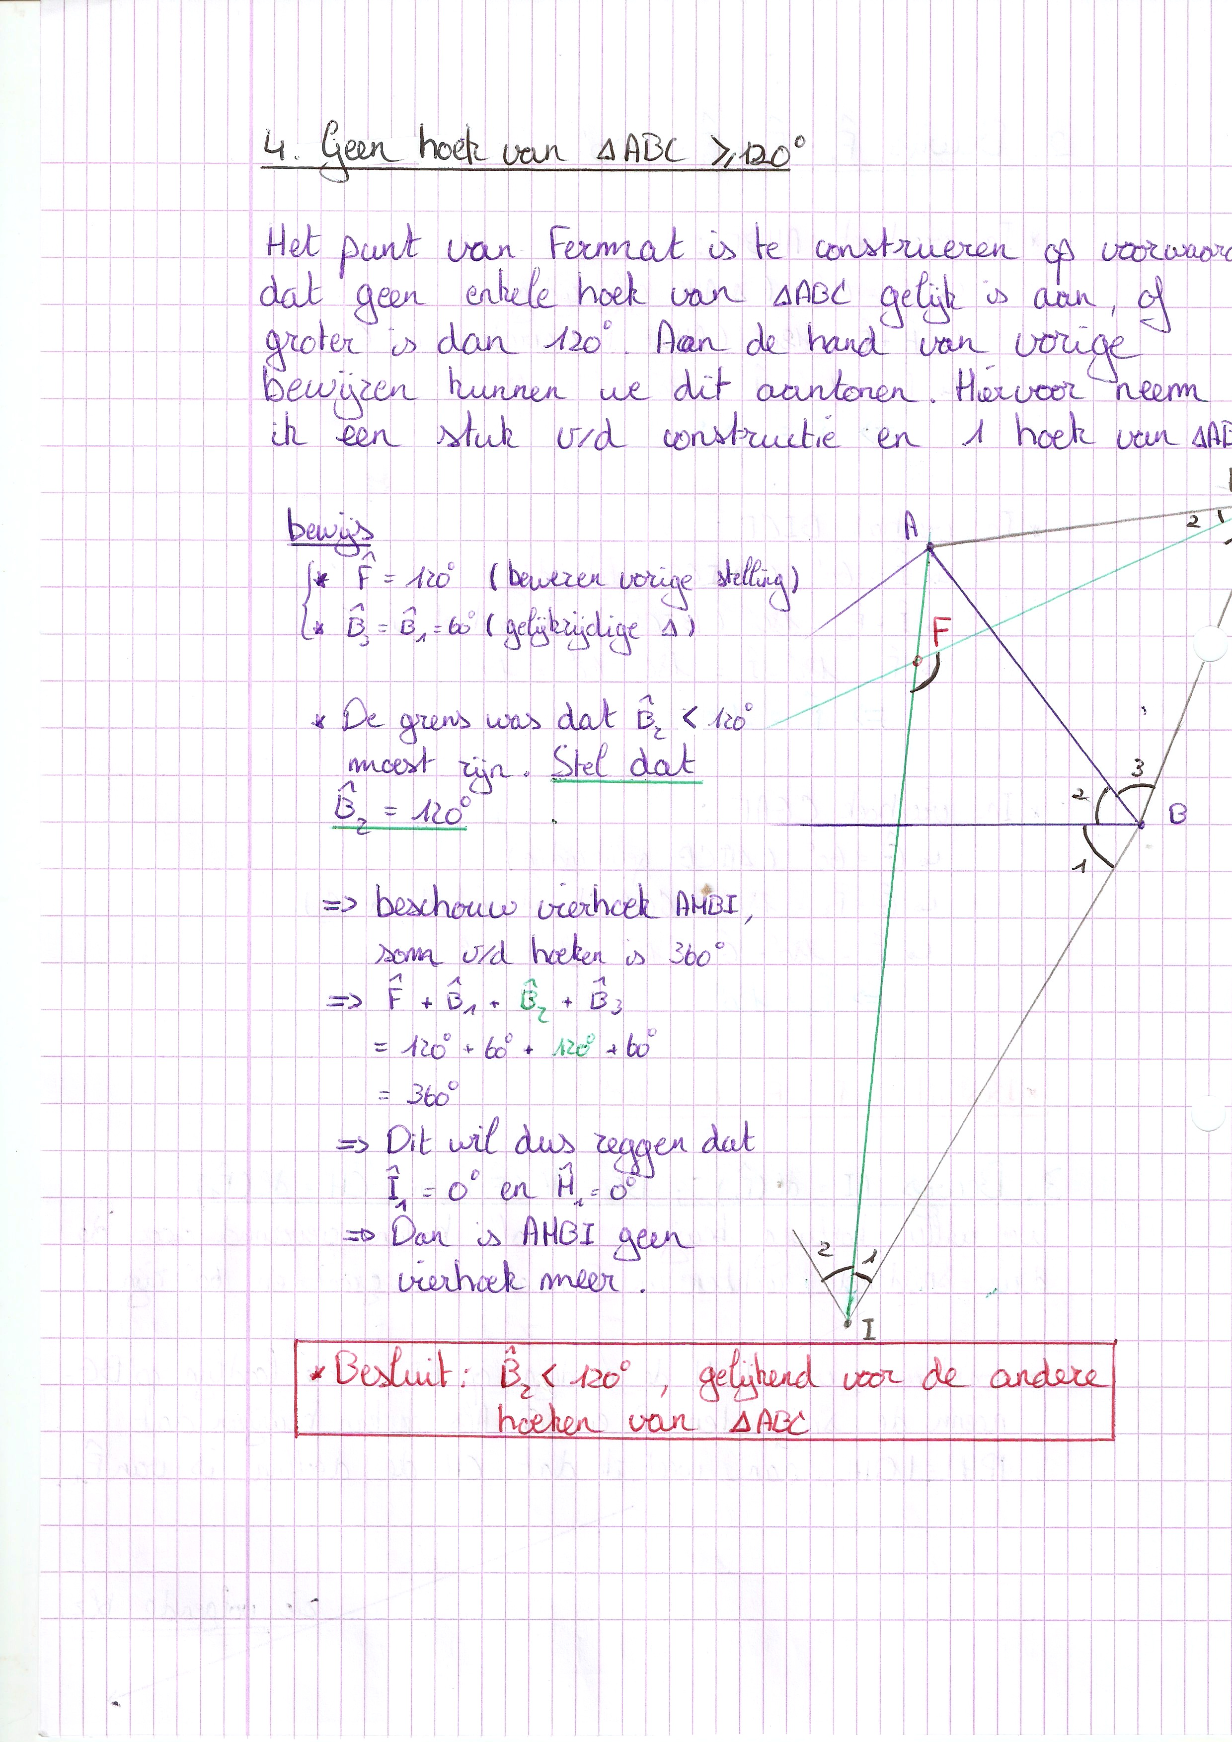 4. Geen hoek van △ABC ⩾ 120°
Het punt van Fermat is te construeren op voorwaard
dat geen enkele hoek van △ABC gelijk is aan, of
groter is dan 120°. Aan de hand van vorige
bewijzen kunnen we dit aantonen. Hiervoor neem
ik een stuk v/d constructie en 1 hoek van △AB
bewijs
* F̂ = 120° (bewezen vorige stelling)
* B̂₃ = B̂₁ = 60° (gelijkzijdige △)
* De grens was dat B̂₂ < 120°
moest zijn. Stel dat
B̂₂ = 120°
=> beschouw vierhoek AHBI,
som v/d hoeken is 360°
=> F̂ + B̂₁ + B̂₂ + B̂₃
= 120° + 60° + 120° + 60°
= 360°
=> Dit wil dus zeggen dat
Î₁ = 0° en Ĥ₁ = 0°
=> Dan is AHBI geen
vierhoek meer.
A
2 1
F
3
2
B
1
2 1
I
* Besluit: B̂₂ < 120°, gelijkend voor de andere
hoeken van △ABC